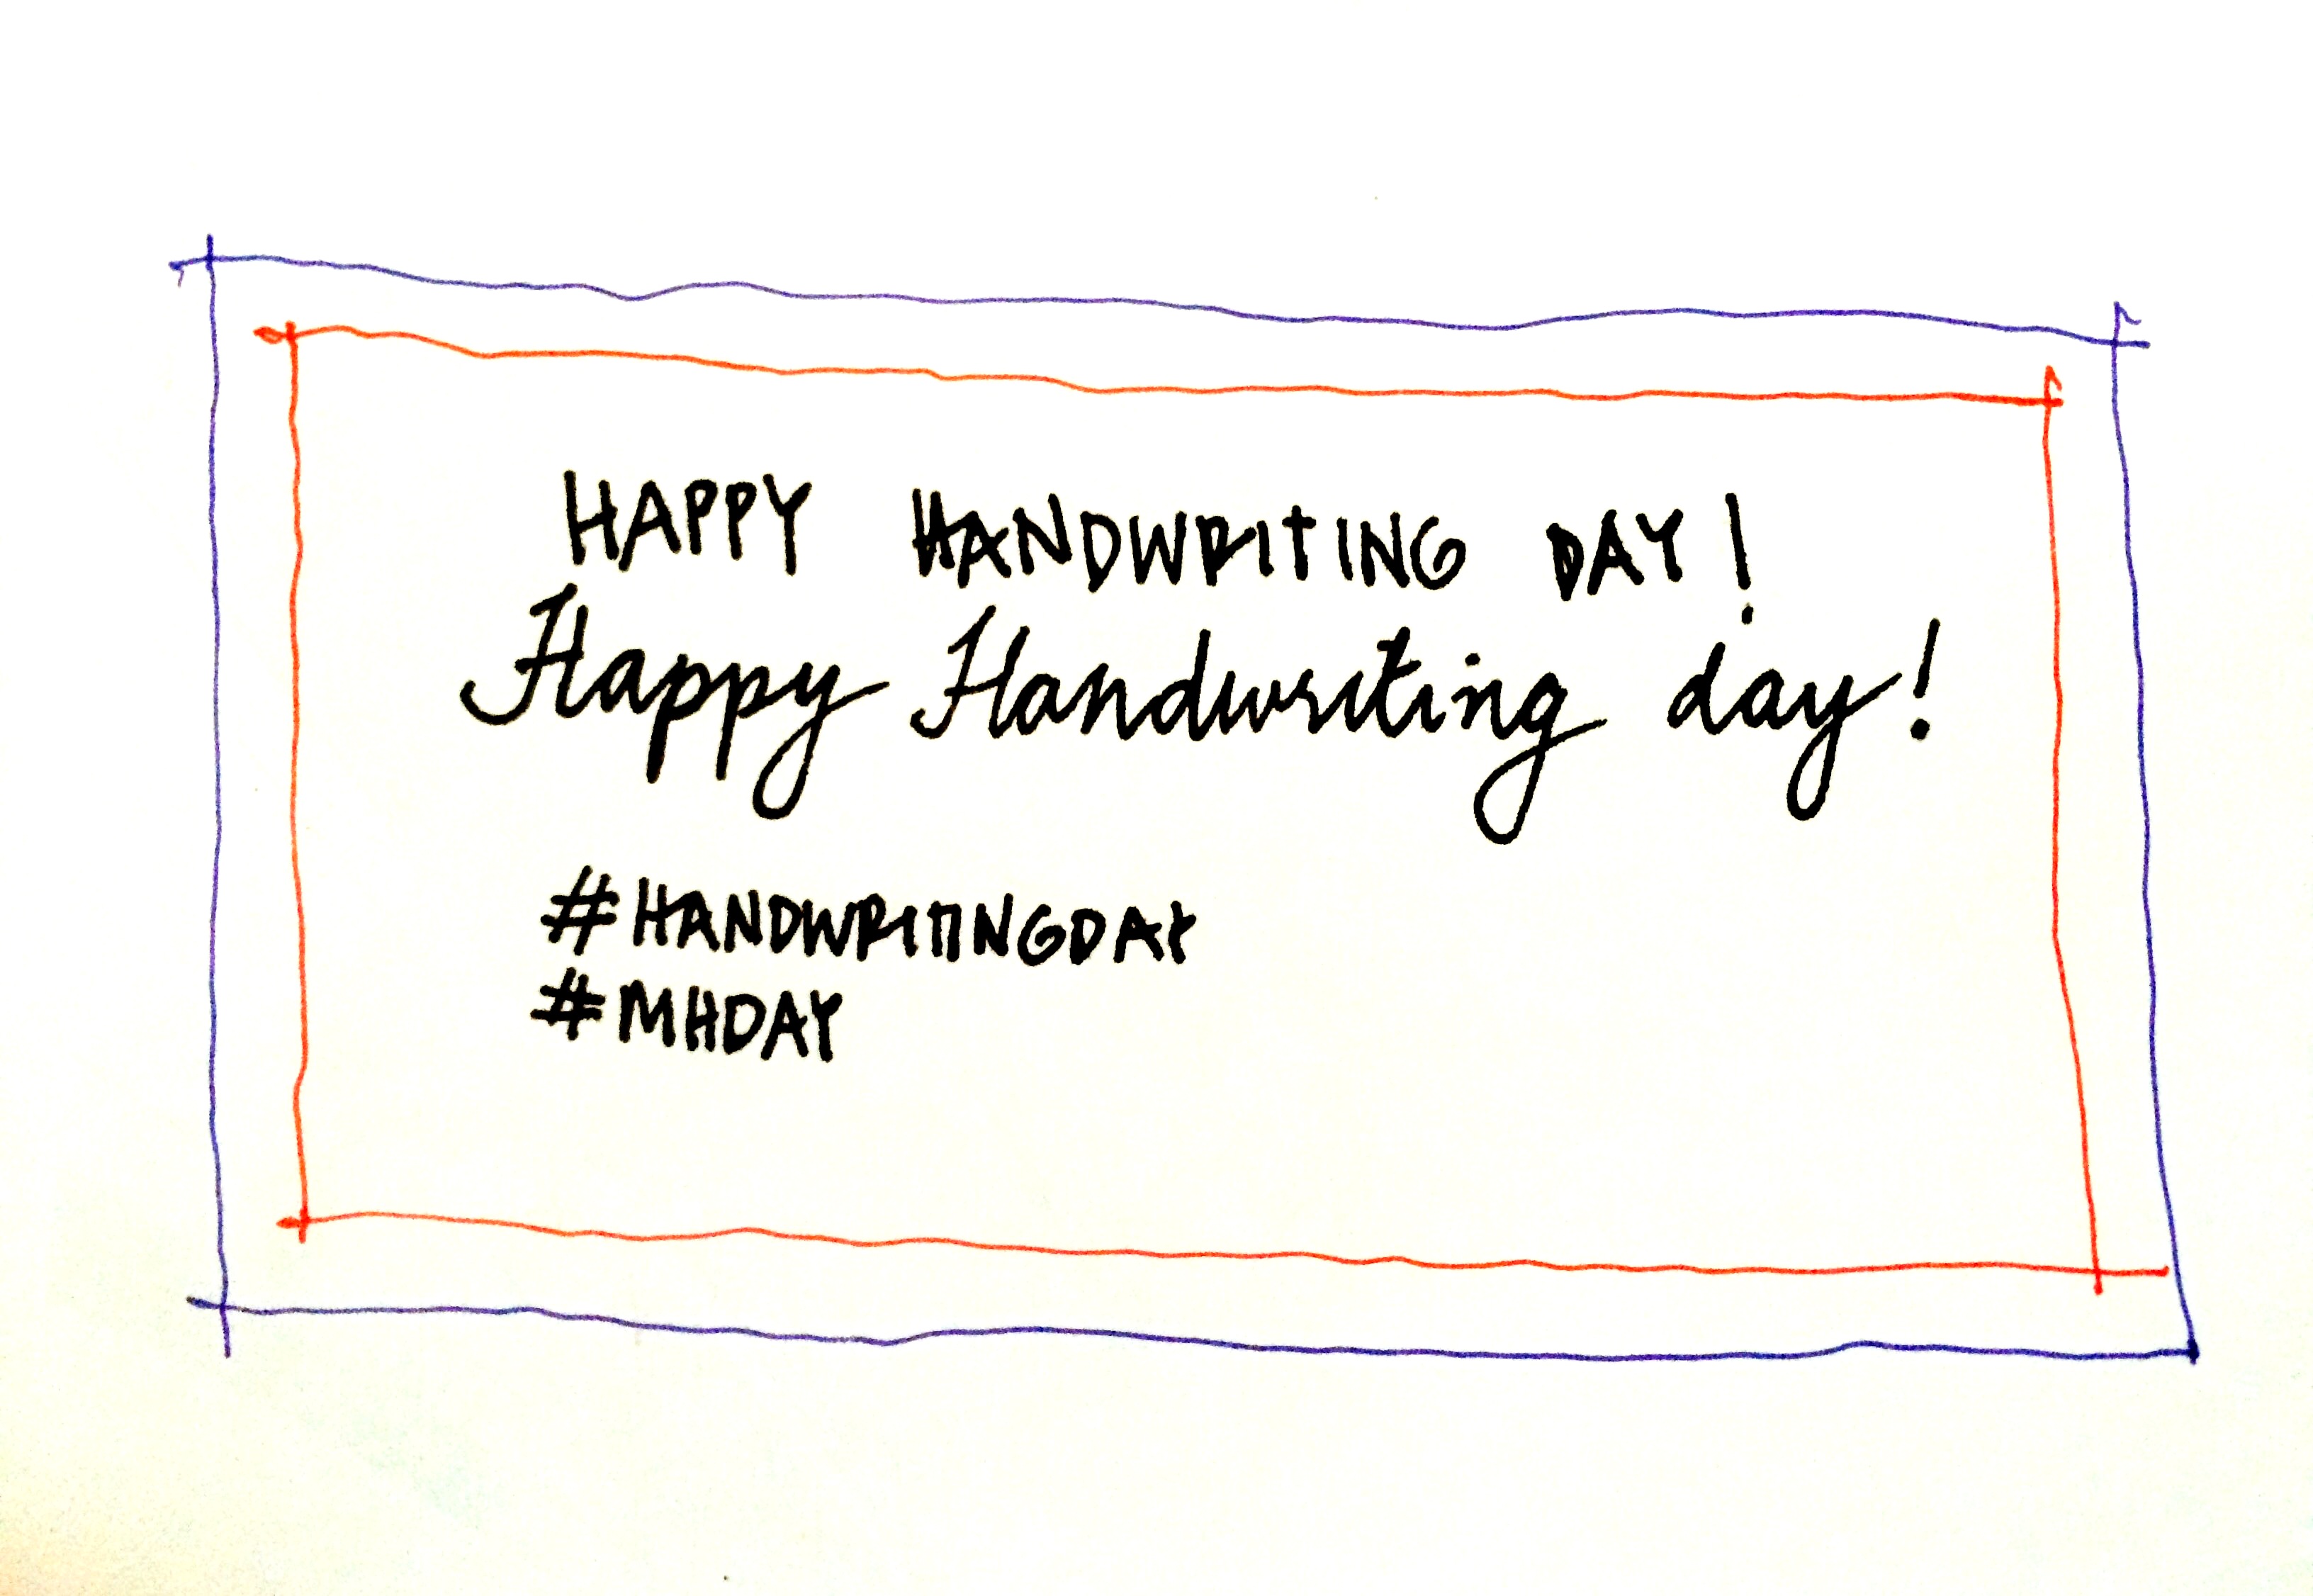 HAPPY HANDWRITING DAY!
Happy Handwriting day!
#HANDWRITINGDAY
#MHDAY